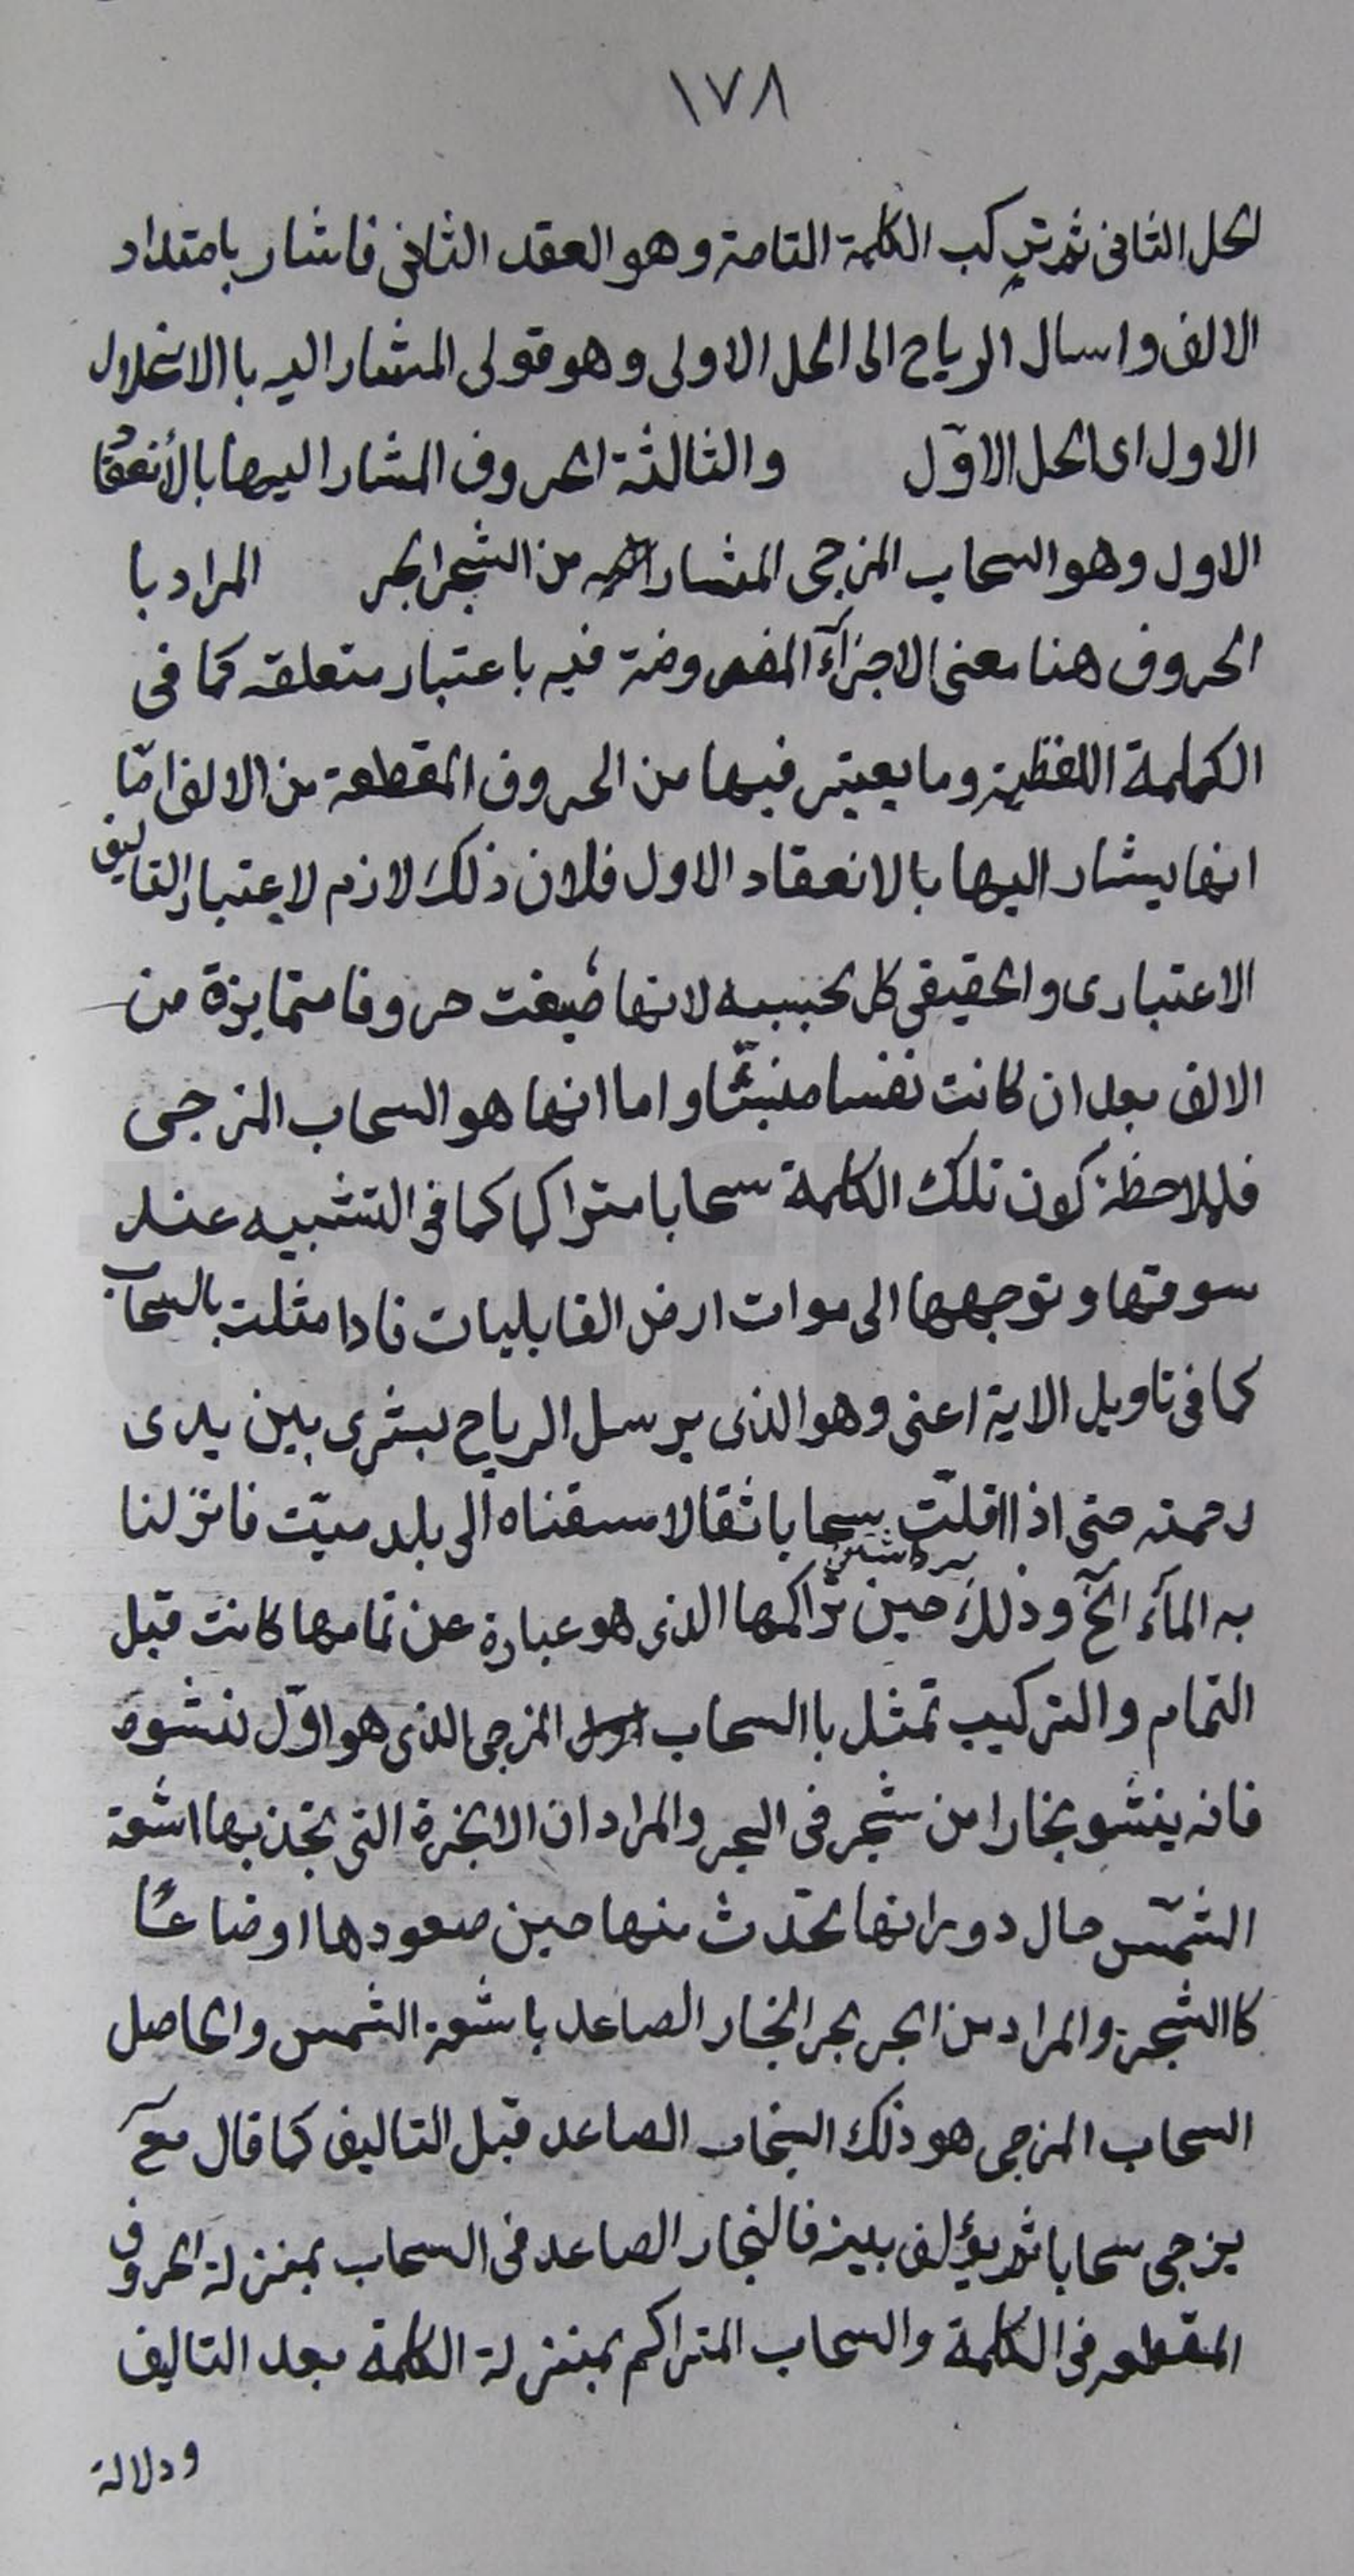 ١٧٨
الحل الثانى ثم تركب الكلمة التامة وهو العقد الثانى فاشار بامتداد
الالف وارسال الرياح الى الحل الاولى وهو قولى المشار اليه باالانحلال
الاول اى الحل الاوّل والثالثة الحروف المشار اليها بالأنعقاد
الاول وهو السحاب المزجى المشار اليه من الشجر البحر المراد با
الحروف هنا معنى الاجزآء المفروضة فيه باعتبار متعلقه كما فى
الكلمة اللفظية وما يعتبر فيها من الحروف المقطعة من الالف امّا
انها يشار اليها بالانعقاد الاول فلان ذلك لازم لاعتبار التاليف
الاعتبارى والحقيقى كل بحسبه لانها صُيغت حروفا متمايزة من
الالف بعد ان كانت نفسا منبثّا واما انها هو السحاب المزجى
فلملاحظة كون تلك الكلمة سحابا متراكما كما فى التشبيه عند
سوقها وتوجهها الى موات ارض القابليات فاذا مثلت بالسحاب
كما فى تاويل الاية اعنى وهو الذى يرسل الرياح بشرى بين يدى
رحمته حتى اذا اقلّت سحابا ثقالا سقناه الى بلد ميّت فانزلنا
به المآء الخ وذلك حين تراكمها الذى هو عبارة عن تمامها كانت قبل
التمام والتركيب تمثل باالسحاب المزجى الذى هو اوّل نشوه
فانه ينشو بخارا من شجر فى البحر والمراد ان الابخرة التى تجذبها اشعة
الشمس حال دورانها تحدث منها حين صعودها اوضاعًا
كاالشجرة والمراد من البحر بحر البخار الصاعد باشعة الشمس والحاصل
السحاب المزجى هو ذلك البخار الصاعد قبل التاليف كما قال تع
يزجى سحابا ثم يؤلف بينه فالبخار الصاعد فى السحاب بمنزلة الحروف
المقطعه فى الكلمة والسحاب المتراكم بمنزلة الكلمة بعد التاليف
ودلالة